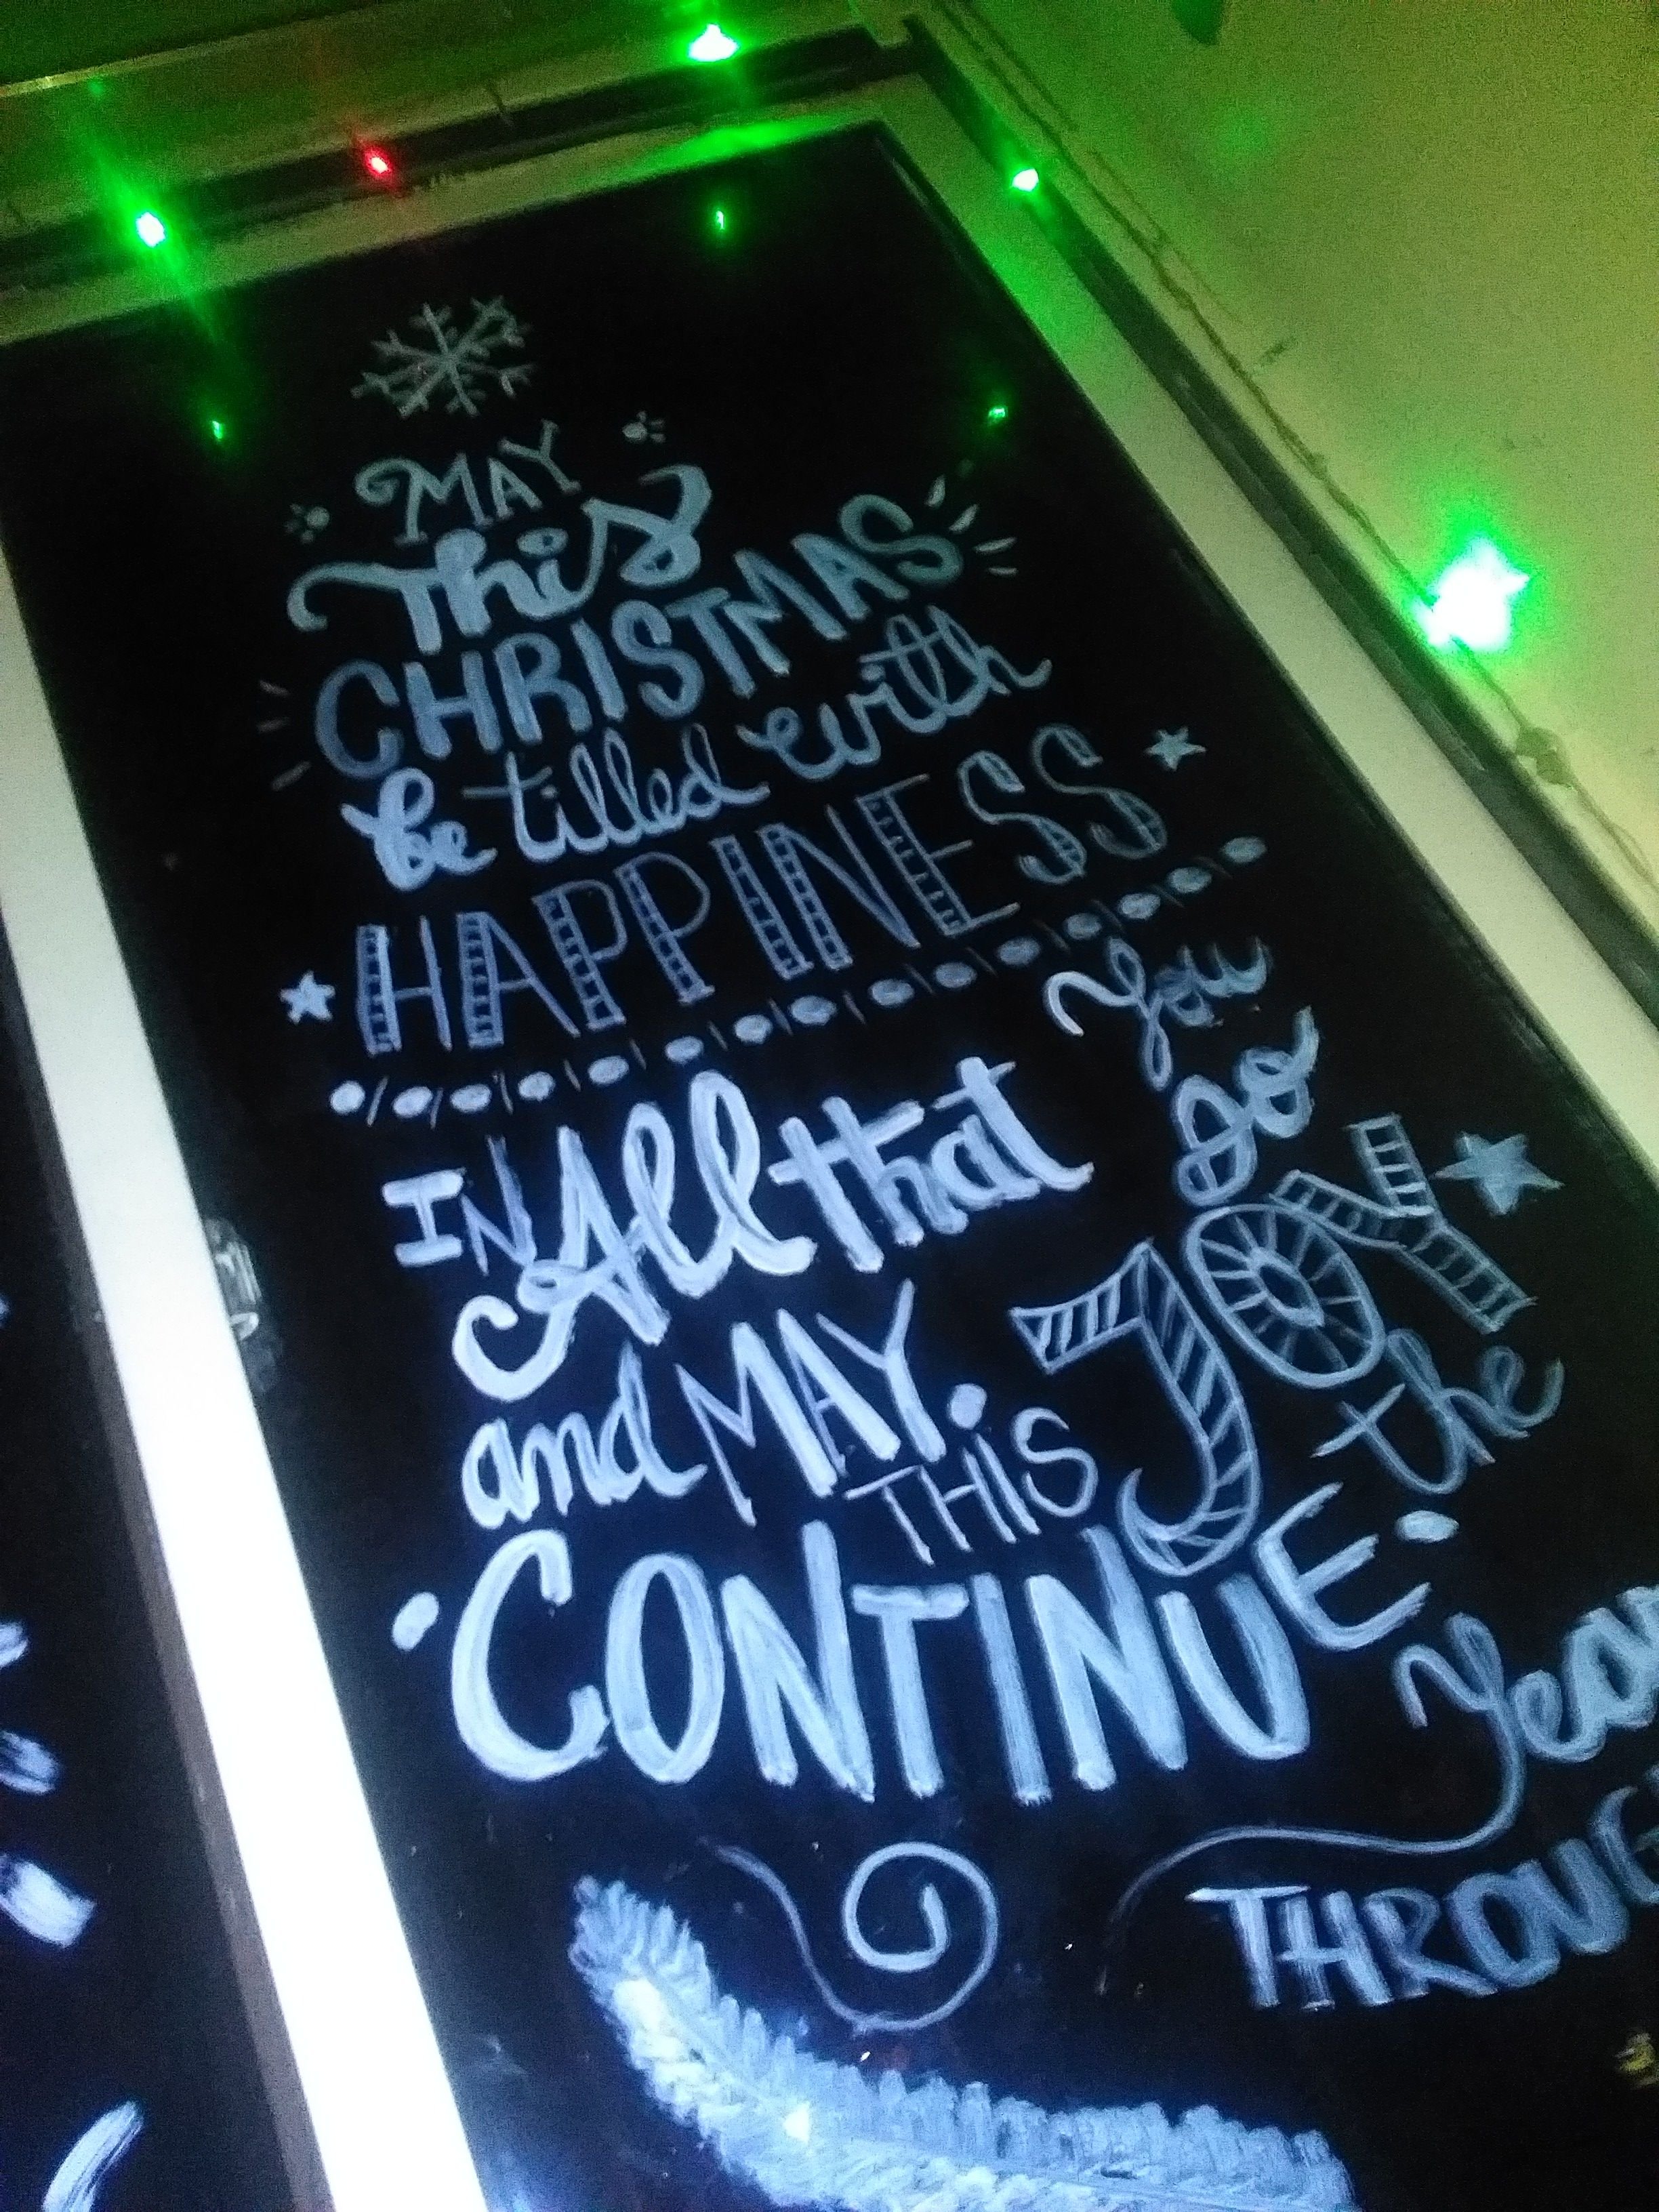 MAY
This
CHRISTMAS
be filled with
HAPPINESS
IN All that You do
and MAY THIS JOY
CONTINUE the
Year
THROUG